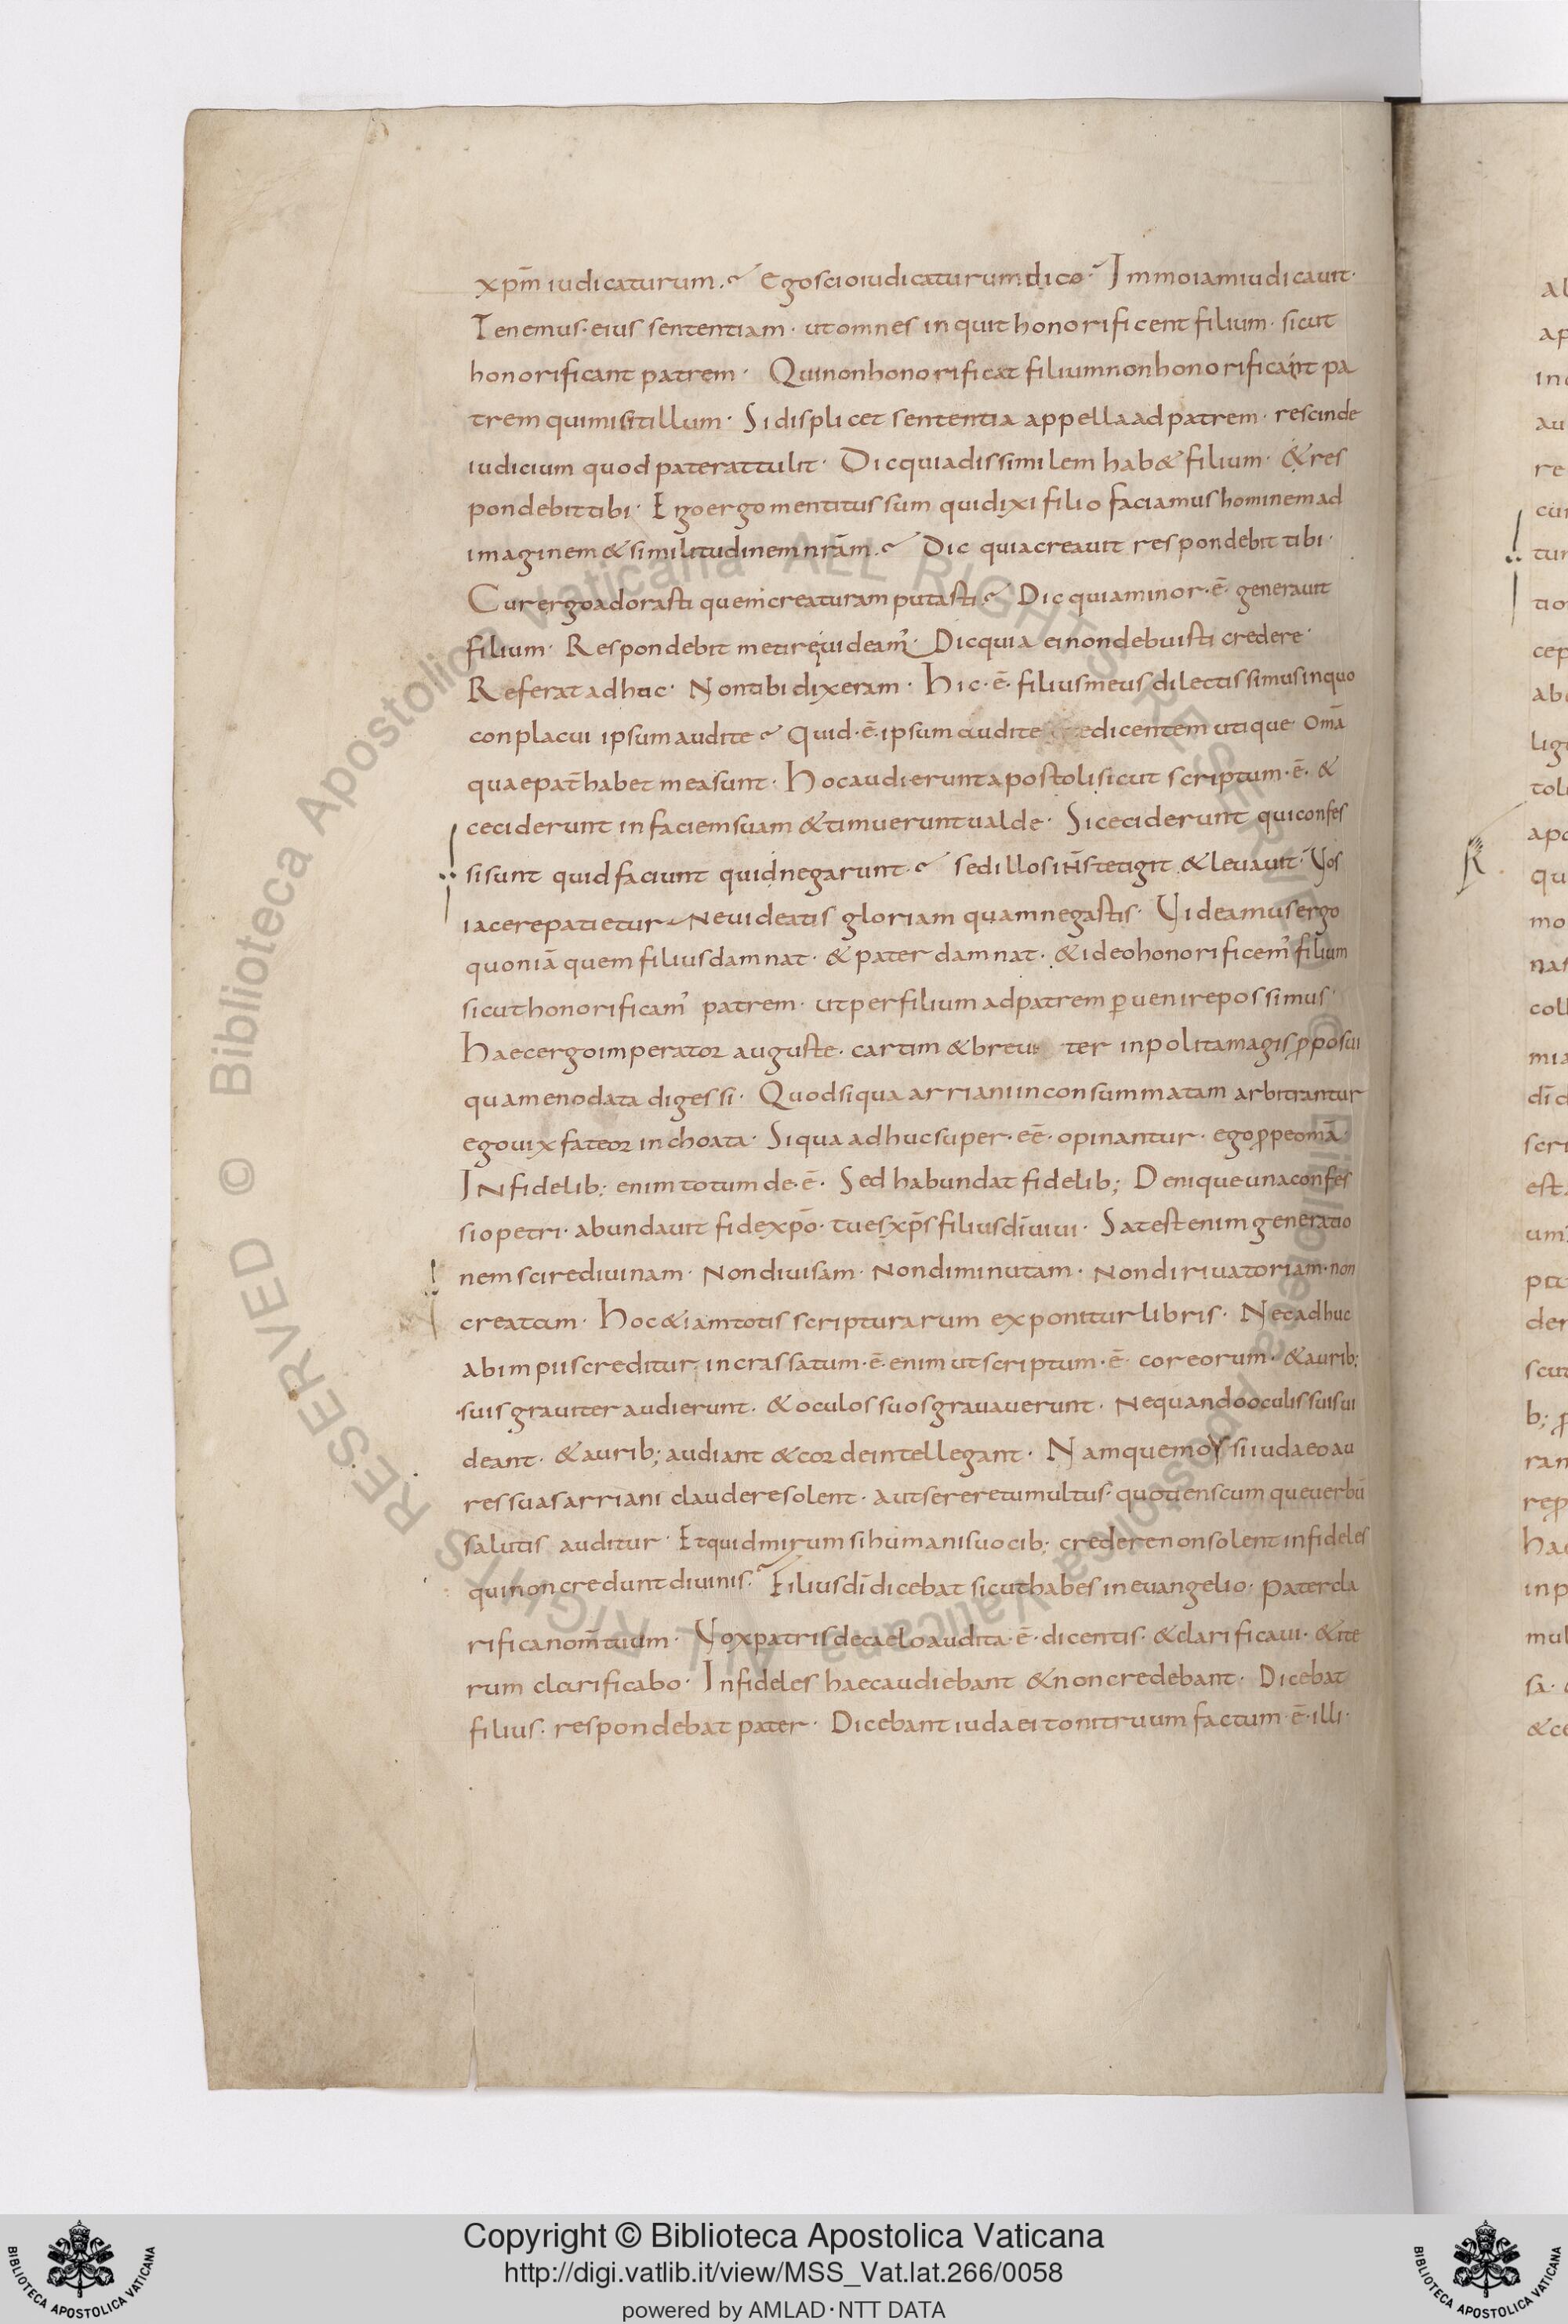 xpm̄ iudicaturum. Ego scio iudicaturum dico. Immo iam iudicauit·
Tenemus· eius sententiam· ut omnes inquit honorificent filium· sicut
honorificant patrem· Qui non honorificat filium non honorificant pa
trem qui misit illum· Si displicet sententia appella ad patrem· rescinde
iudicium quod pater attulit· Dic quia dissimilem hab& filium· & res
pondebit tibi· Ego ergo mentitus sum qui dixi filio faciamus hominem ad
imaginem & similitudinem nrām. Dic quia creauit respondebit tibi·
Cur ergo adorasti quem creaturam putasti. Dic quia minor·ē· generauit
filium· Respondebit metire uideam᾽· Dic quia ei non debuisti credere·
Referat ad huc· Non tibi dixeram· Hic·ē· filius meus dilectissimus in quo
conplacui ipsum audite Quid·ē· ipsum audite dicentem utique· Omā
quae pat̄ habet mea sunt· Hoc audierunt apostoli sicut scriptum·ē· &
ceciderunt in faciem suam & timuerunt ualde· Si ceciderunt qui confes
si sunt quid faciunt qui negarunt· sed illos ih̄s tetigit & leuauit· Vos
iacere patietur Ne uideatis gloriam quam negastis· Videamus ergo
quoniā quem filius damnat· & pater damnat· & ideo honorificem᾽ filium
sicut honorificam᾽ patrem· ut per filium ad patrem ꝑuenire possimus·
Haec ergo imperator auguste· cartim & breui ter inpolita magis ꝓposui
quam enodata digessi· Quod si qua arriani inconsummatam arbitrantur
ego uix fateor inchoata· Si qua adhuc super·eē· opinantur· ego ꝓpe omā·
Infidelib; enim totum de·ē· Sed habundat fidelib; Denique una confes
sio petri· abundauit fide xpō· tu es xp̄s filius dī uiui· Sat est enim generatio
nem scire diuinam· Non diuisam· Non diminutam· Non diriuatoriam· non
creatam· Hoc &iam totis scripturarum exponitur libris· Nec adhuc
ab impiis creditur· incrassatum·ē· enim ut scriptum·ē· cor eorum· & aurib;
suis grauiter audierunt· & oculos suos grauauerunt· Ne quando oculis suis ui
deant· & aurib; audiant & corde intellegant· Nam quemoysi iudaeo au
res suas arriani claudere solent· aut serere tumultus· quotienscumque uerbū
salutis auditur· Et quid mirum si humanis uocib; credere non solent infideles
qui non credunt diuinis. Filius dī dicebat sicut habes in euangelio· Pater cla
rifica nom̄ tuum· Vox patris de caelo audita·ē· dicentis· & clarificaui· & ite
rum clarificabo· Infideles haec audiebant & non credebant· Dicebat
filius· respondebat pater· Dicebant iudaei tonitruum factum·ē· illi·
© Biblioteca Apostolica Vaticana ALL RIGHTS RESERVED
Copyright © Biblioteca Apostolica Vaticana
http://digi.vatlib.it/view/MSS_Vat.lat.266/0058
powered by AMLAD·NTT DATA
BIBLIOTECA APOSTOLICA VATICANA
BIBLIOTECA APOSTOLICA VATICANA